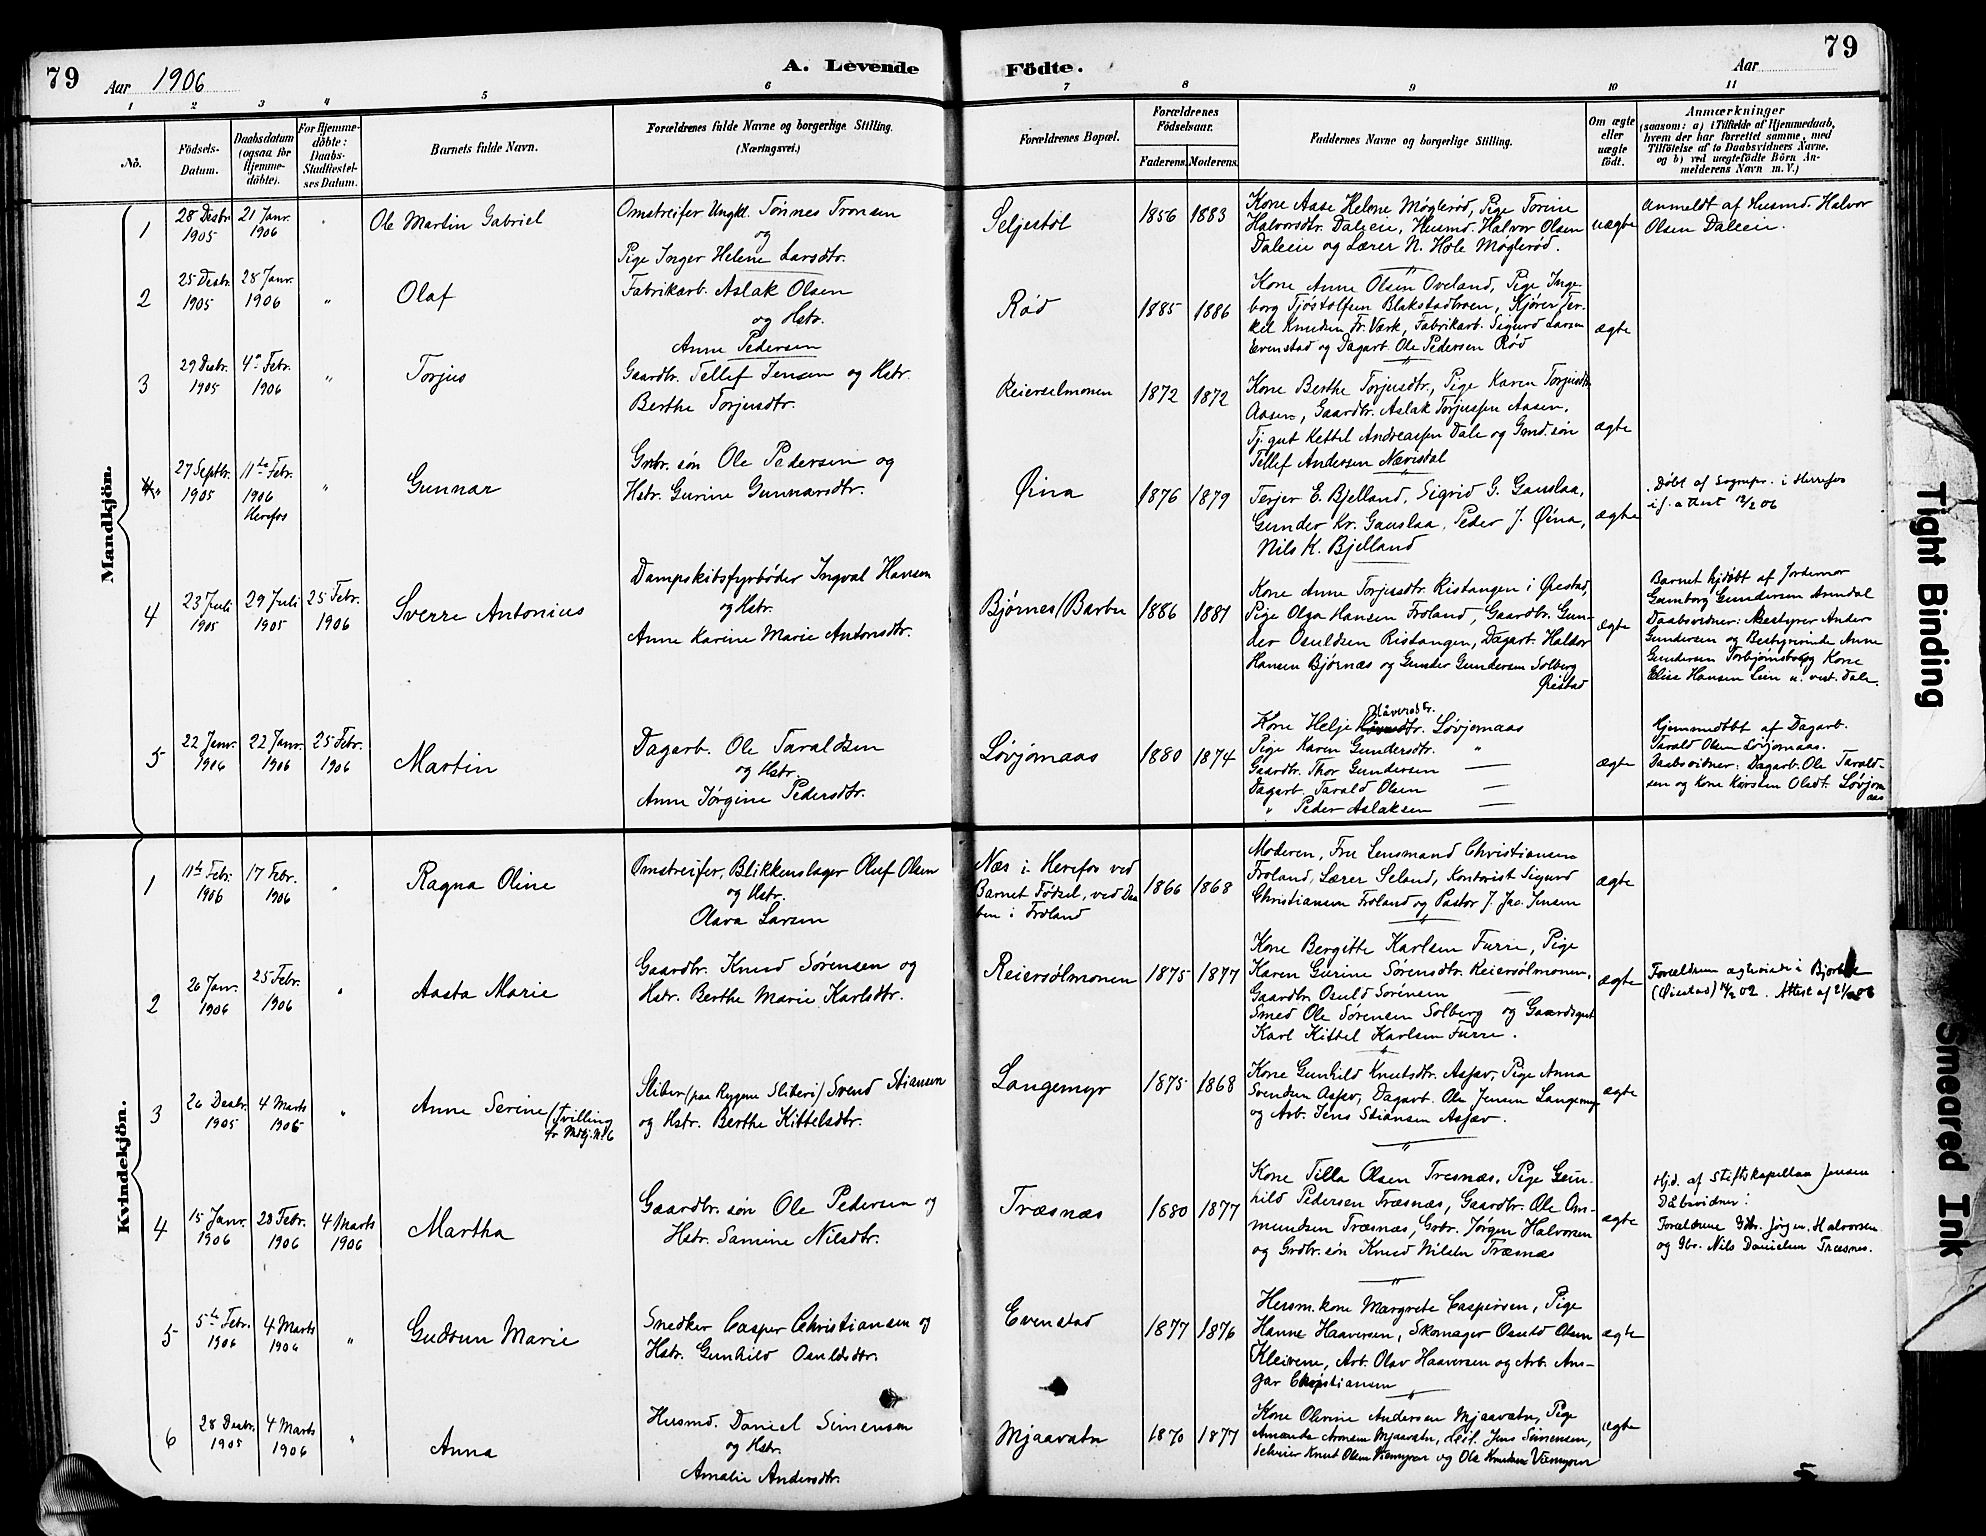 79
Aar 1906
A. Levende
Födte.
Aar
79
1 2 3 4 5 6 7 8 9 10 11
No.
Födsels-Datum.
Daabsdatum (ogsaa for Hjemmedöbte).
For Hjemmedöbte: Daabs-Stadfæstelses Datum.
Barnets fulde Navn.
Forældrenes fulde Navne og borgerlige Stilling.
(Næringsvei.)
Forældrenes Bopæl.
Forældrenes Födselsaar.
Faderens. Moderens.
Faddernes Navne og borgerlige Stilling.
Om ægte eller uægte födt.
Anmærkninger
(saasom: a) i Tilfælde af Hjemmedaab,
hvem der har forrettet samme, med
Tilföielse af to Daabsvidners Navne.
og b) ved uægtefödte Börn An-
melderens Navn m. V.)
Mandkjön.
1
28 Desbr. 1905
21 Janr. 1906
"
Ole Martin Gabriel
Omstreifer Ungkl. Tønnes Tronsen
og
Pige Inger Helene Larsdtr.
Seljestøl
1856 1883
Kone Aase Helene Møglerød, Pige Torine
Halvorsdtr. Daleie, Husmd. Halvor Olsen
Daleie og Lærer N. Hole Møglerød.
uægte
Anmeldt af Husmd. Halvor
Olsen Daleie.
2
25 Desbr. 1905
28 Janr. 1906
"
Olaf
Fabrikarb. Aslak Olsen
og Hstr.
Anne Pedersen
Rød
1885 1886
Kone Anne Olsen Oveland, Pige Inge-
borg Tjøstolfsen Blakstadbroen, Kjører Ter-
kel Knudsen Fr. Værk, Fabrikarb. Sigurd Larsen
Evenstad og Dagarb. Ole Pedersen Rød
ægte
3
29 Desbr. 1905
4de Febr. 1906
"
Torjus
Gaardbr. Tellef Jensen og Hstr.
Berthe Torjusdtr.
Reierselmonen
1872 1872
Kone Berthe Torjusdtr, Pige Karen Torjusdtr.
Aasen, Gaardbr. Aslak Torjussen Aasen,
Tj. gut Kettel Andreassen Dale og Gmd. søn
Tellef Andersen Nævisdal
ægte
27 Septbr. 1905
11te Febr. 1906 Herefos
"
Gunnar
Grbr. søn Ole Pedersen og
Hstr. Gurine Gunnarsdtr.
Øina
1876 1879
Terjer E. Bjelland, Sigrid G. Gauslaa,
Gunder Kr. Gauslaa, Peder J. Øina,
Nils K. Bjelland
ægte
Døbt af Sognepr. i Herrefos
if. attest 12/2 06
4
23 Juli 1905
29 Juli 1905
25 Febr. 1906
Sverre Antonius
Dampskibsfyrbøder Ingval Hansen
og Hstr.
Anne Karine Marie Antonsdtr.
Bjørnes (Barbu
1886 1881
Kone Anne Torjusdtr. Ristangen i Øiestad,
Pige Olga Hansen Froland, Gaardbr. Gun-
der Osuldsen Ristangen, Dagarb. Haldor
Hansen Bjørnæs og Gunder Gundersen Solberg
Øiestad
ægte
Barnet hjdøbt af Jordemor
Gunborg Gundersen Arendal
Daabsvidner: Bestyrer Ander
Gundersen og Bestyrerinde Anne
Gundersen Torbjørnsbo og Kone
Elise Hansen Lien n. vest. Dale.
5
22 Janr. 1906
22 Janr. 1906
25 Febr. 1906
Martin
Dagarb. Ole Taraldsen
og Hstr.
Anne Jørgine Pedersdtr.
Løvjomaas
1880 1874
Kone Helje Haaversdtr. Løvjomaas
Pige Karen Gundersdtr. "
Gaardbr. Thor Gundersen —
Dagarb. Tarald Olsen —
" Peder Aslaksen —
ægte
Hjemmedøbt af Dagarb.
Tarald Olsen Løvjomaas.
Daabsvidner: Dagarb. Ole Tarald-
sen og Kone Kirsten Olsdt. Løvjom
aas
Kvindekjön.
1
11te Febr. 1906
17 Febr. 1906
"
Ragna Oline
Omstreifer, Blikkenslager Oluf Olsen
og Hstr.
Olava Larsen
Næs i Herefos ved
Barnet Fødsel, ved Daa
ben i Froland
1866 1868
Moderen, Fru Lensmand Christiansen
Froland, Lærer Seland, Kontorist Sigurd
Christiansen Froland og Pastor J. Jac. Jensen
ægte
2
26 Janr. 1906
25 Febr. 1906
"
Aasta Marie
Gaardbr. Knud Sørensen og
Hstr. Berthe Marie Karlsdtr.
Reiersølmonen
1875 1877
Kone Bergitte Karlsen Furre, Pige
Karen Gurine Sørensdtr. Reiersølmonen,
Gaardbr Osuld Sørensen —
Smed Ole Sørensen Solberg og Gaardsgut
Karl Kittel Karlsen Furre.
ægte
Forældrene ægteviede i
(Øiestad) 02. Attest af
3
26 Desbr. 1905
4 Marts 1906
"
Anne Serine (Tvilling
fr Mdkj. No 6
Sliber (paa Rygene Sliberi) Svend Stiansen
og Hstr. Berthe Kittelsdtr.
Langemyr
1875 1868
Kone Gunhild Knutsdtr. Assæv, Pige Anna
Svendsen Assæv, Dagarb. Ole Jensen Langemyr
og Arb. Jens Stiansen Assæv.
ægte
4
15 Janr. 1906
20 Febr. 1906
4 Marts 1906
Martha
Gaardbr. søn Ole Pedersen og
Hstr. Samine Nilsdtr.
Træsnæs
1880 1877
Kone Tilla Olsen Tresnæs, Pige Gun-
hild Pedersen Træsnæs, Gaardbr. Ole Os-
mundsen Træsnæs, Grbr. Jørgen Halvorsen
og Grdbr. søn Knud Nilsen Træsnæs
ægte
Hjd. af Stiftskapellan Jensen
Dåbsvidner:
Forældrene Gbr. Jørgen Halvorsen
og Gbr. Nils Danielsen Træsnes.
5
5te Febr. 1906
4 Marts 1906
"
Gudrun Marie
Snedker Casper Christiansen og
Hstr. Gunhild Osuldsdtr.
Evenstad
1877 1876
Husm. kone Margrete Caspersen, Pige
Hanne Haaversen, Skomager Osuld Olsen
Kleivene, Arb. Olav Haaversen og Arb. Ans-
gar Christiansen
ægte
6
28 Desbr. 1905
4 Marts 1906
"
Anna
Husmd. Daniel Simensen
og Hstr.
Amalie Andersdtr.
Mjaavatn
1870 1877
Kone Olevine Andersen Mjaavatn, Pige
Amanda Aronsen Mjaavatn, Jens Simensen,
Knut Olsen Viemyren og Ole Knudsen Viemyren
ægte
Tight Binding
Smeared Ink